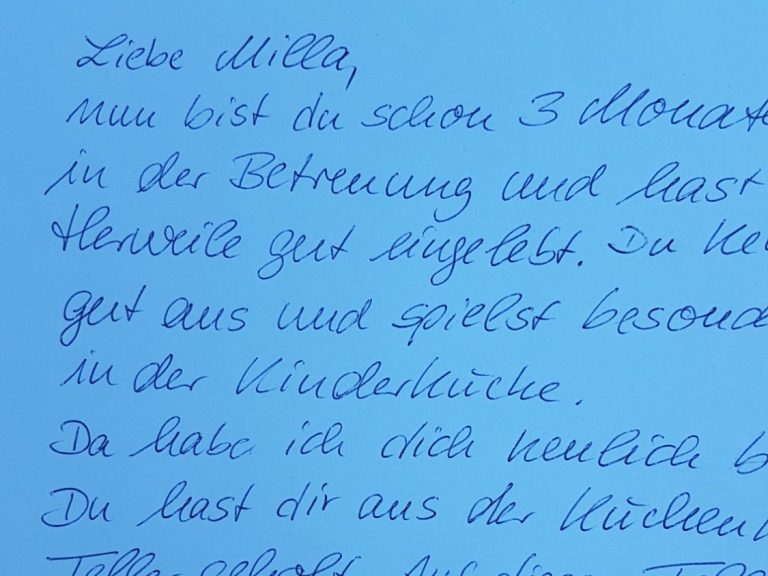 Liebe Milla,
nun bist du schon 3 Monate
in der Betreuung und hast
tlerweile gut eingelebt. Du ke
gut aus und spielst besond
in der Kinderküche.
Da habe ich dich neulich b
Du hast dir aus der Küchen
Teller geholt. Auf diesen